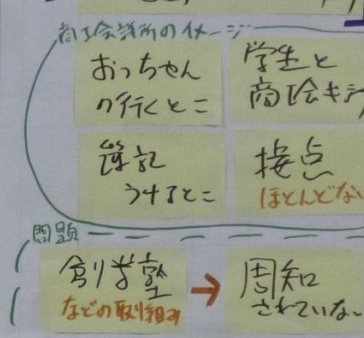 商工会議所のイメージ
おっちゃん
の行くとこ
学生と
簿記
うけるとこ
接点
ほとんどない
問題
創業塾
などの取り組み
→
周知
されていない